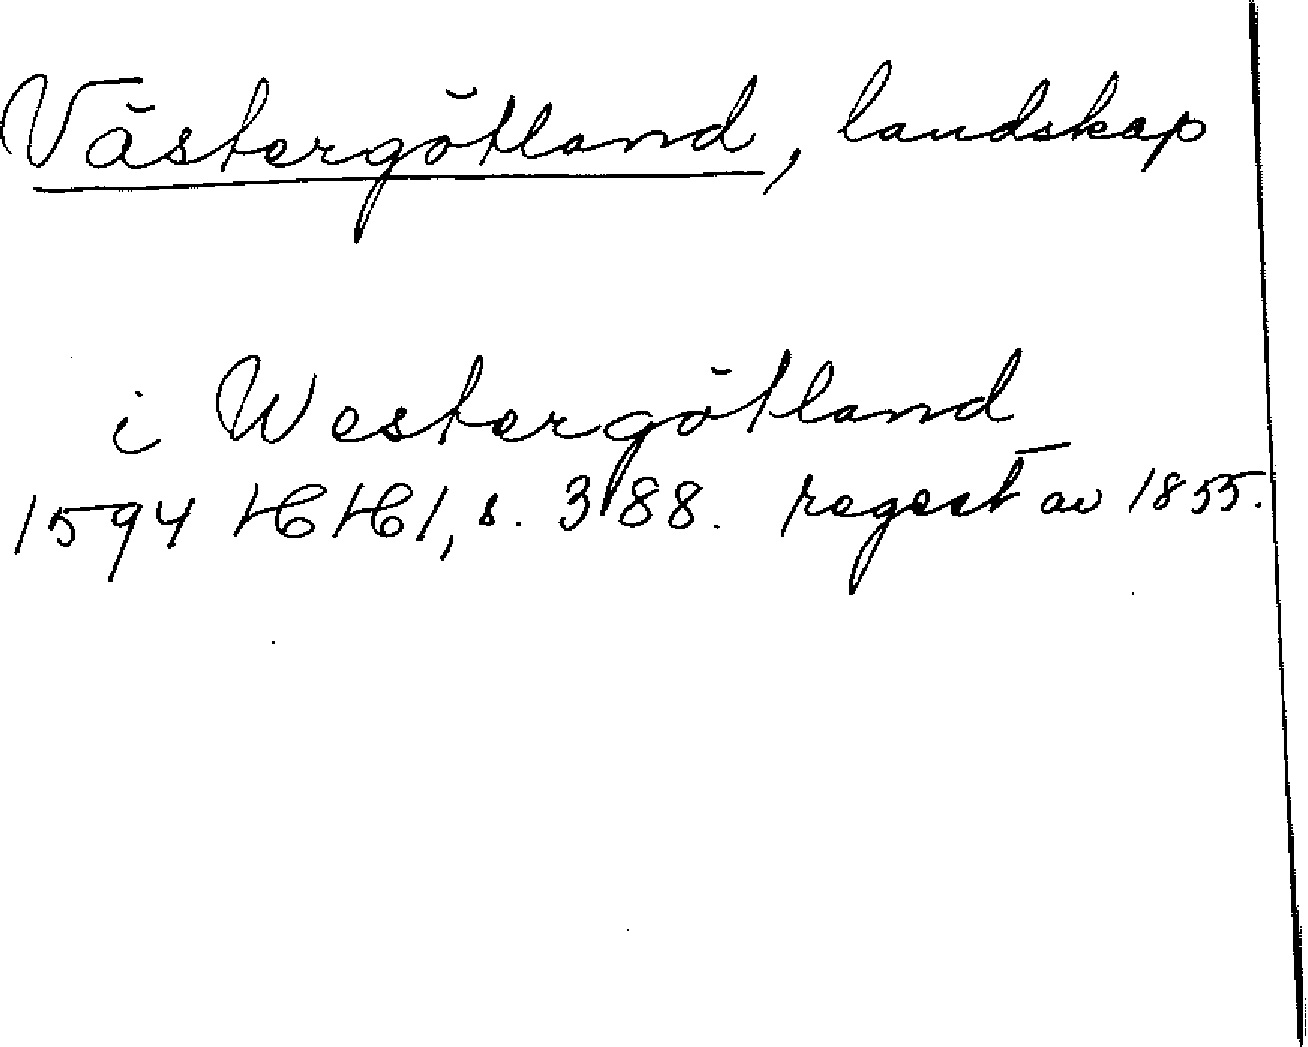 Västergötland, landskap
i Westergötland
1594 HH1, s. 388. regest av 1855.